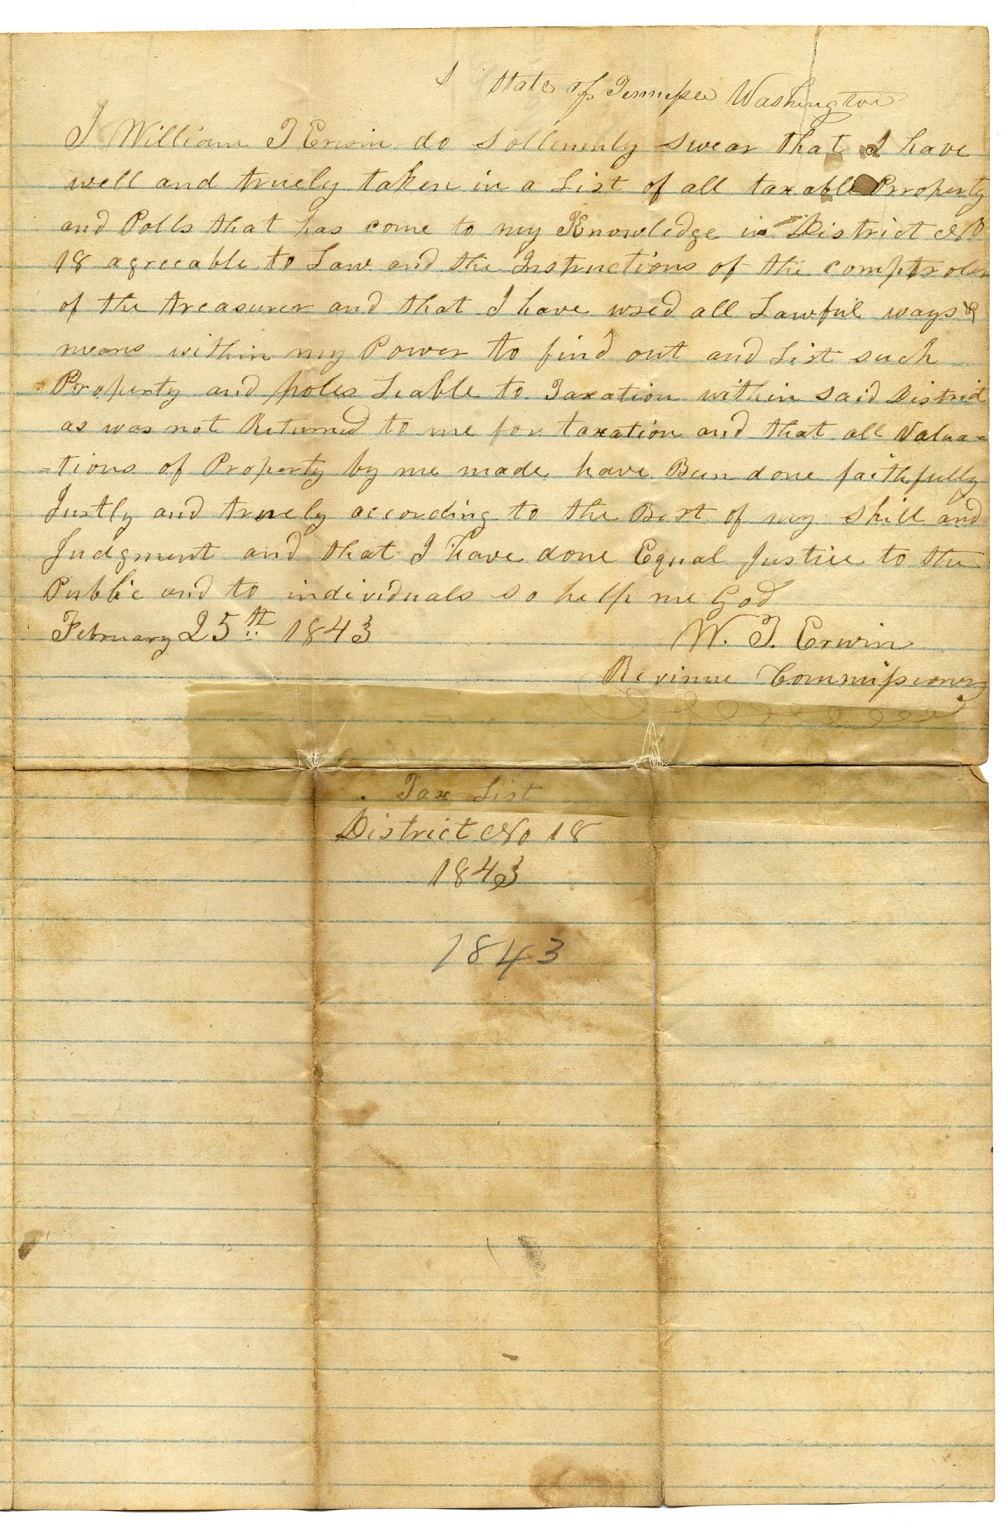 State of Tennessee Washington
I William T Erwin do sollemnly swear that I have
well and truely taken in a List of all taxable Prroperty
and Polls that has come to my Knowledge in District No
18 agreeable to Law and the Instructions of the comptroler
of the treasurer and that I have used all Lawful ways &
means within my Power to find out and List such
Property and poles Leable to Taxation within said District
as was not Returned to me for taxation and that all Valua=
=tions of Property by me made have Been done faithfully
Justly and truely according to the Best of my skill and
Judgment and that I have done Equal Justice to the
Public and to individuals so help me God
February 25th 1843 W. T. Erwin
Revinue Commissioner
Tax List
District No 18
1843
1843